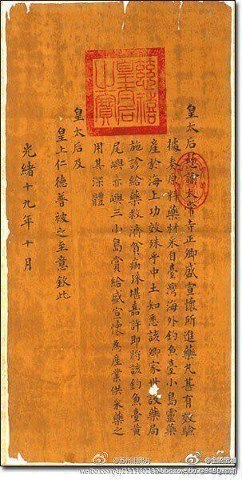 皇太后慈諭太常寺正卿盛宣懷所進藥丸甚有效驗
據奏原料藥材采自臺灣海外釣魚臺小島靈藥
產於海上功效殊乎中土知悉該卿家世設藥局
施診給藥救濟貧病殊堪嘉許即將該釣魚臺黃
尾嶼赤嶼三小島賞給盛宣懷為產業供采藥之
用其深體
皇太后及
皇上仁德普被之至意欽此
光緒十九年十月